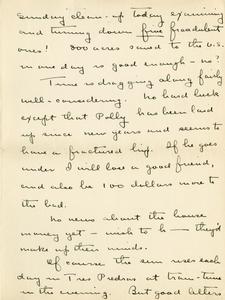 Sunday clean-up today examining
and turning down five fraudulent
ones! 800 acres saved to the U.S.
in one day is good enough - no?
Time is dragging along fairly
well - considering. No hard luck
except that Polly has been laid
up since new years and seems to
have a fractured hip. If he goes
under I will lose a good friend,
and also be 100 dollars more to
the bad.
No news about the house
money yet - wish to h- they'd
make up their minds.
Of course the sun rises each
day in Tres Piedras at train-time
in the evening. But good letters